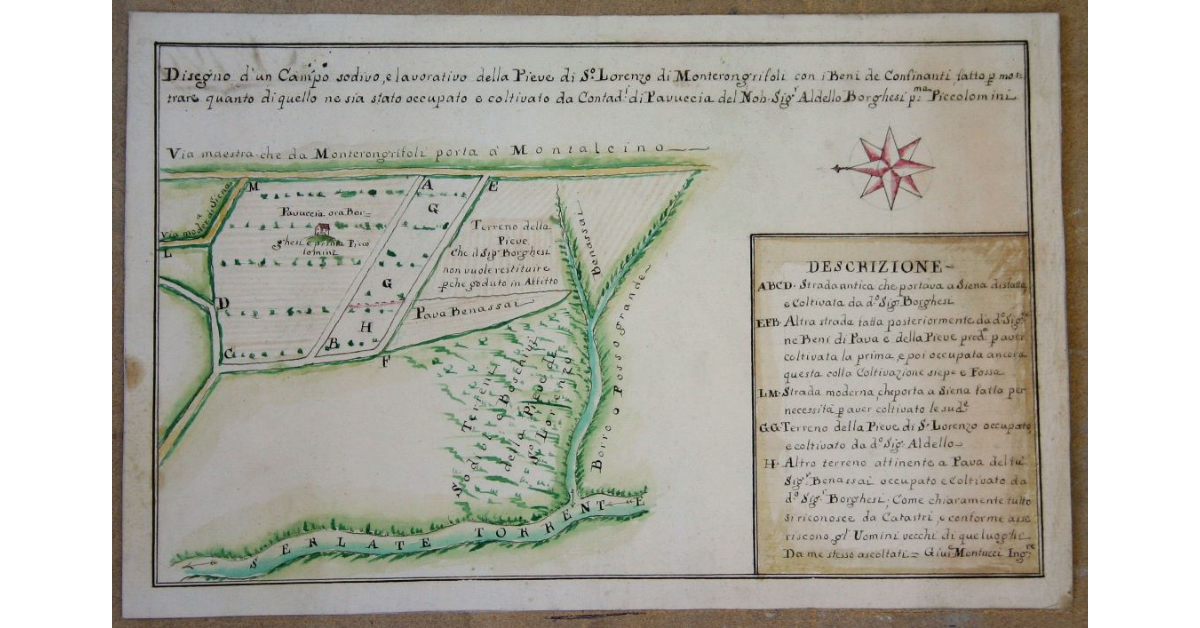 Disegno d'un Campo sodivo, e lavorativo della Pieve di S.o Lorenzo di Monterongrifoli con i Beni de Confinanti fatto p mos
trare quanto di quello ne sia stato occupato e coltivato da Contad.i di Pavuccia del Nob. Sig.r Aldello Borghesi p.ma Piccolomini
Via maestra che da Monterongrifoli porta a Montalcino
M
A
E
G
Via moder.a di Siena
L
Pavuccia ora Bor=
ghesi e prima Picco
lomini
Terreno della
Pieve
Che il Sig.r Borghesi
non vuole restituire
p che goduto in Affitto
Benassai
D
G
Pava Benassai
H
C
B
F
Sodi Terreni
gia Boschivi
della Pieve di
S.o Lorenzo
Borro o Fosso grande
SERLATE TORRENTE
DESCRIZIONE
ABCD. Strada antica che portava a Siena disfatta
e Coltivata da d.o Sig. Borghesi
EFB. Altra strada fatta posteriormente da d.o Sig.re
ne Beni di Pava e della Pieve pred.e p aver
coltivata la prima, e poi occupata ancora
questa colla Coltivazione siepe e Fossa
LM. Strada moderna, che porta a Siena fatta per
necessità p aver coltivato le sud.e
GG Terreno della Pieve di S.o Lorenzo occupato
e coltivato da d.o Sig. Aldello
H. Altro terreno attinente a Pava del fù
Sig.r Benassai occupato e Coltivato da
d.o Sig.r Borghesi, Come chiaramente tutto
si riconosce da Catastri, e conforme asse
riscono gl'Uomini vecchi di que luoghi
Da me stesso ascoltati = Montucci Ing.re